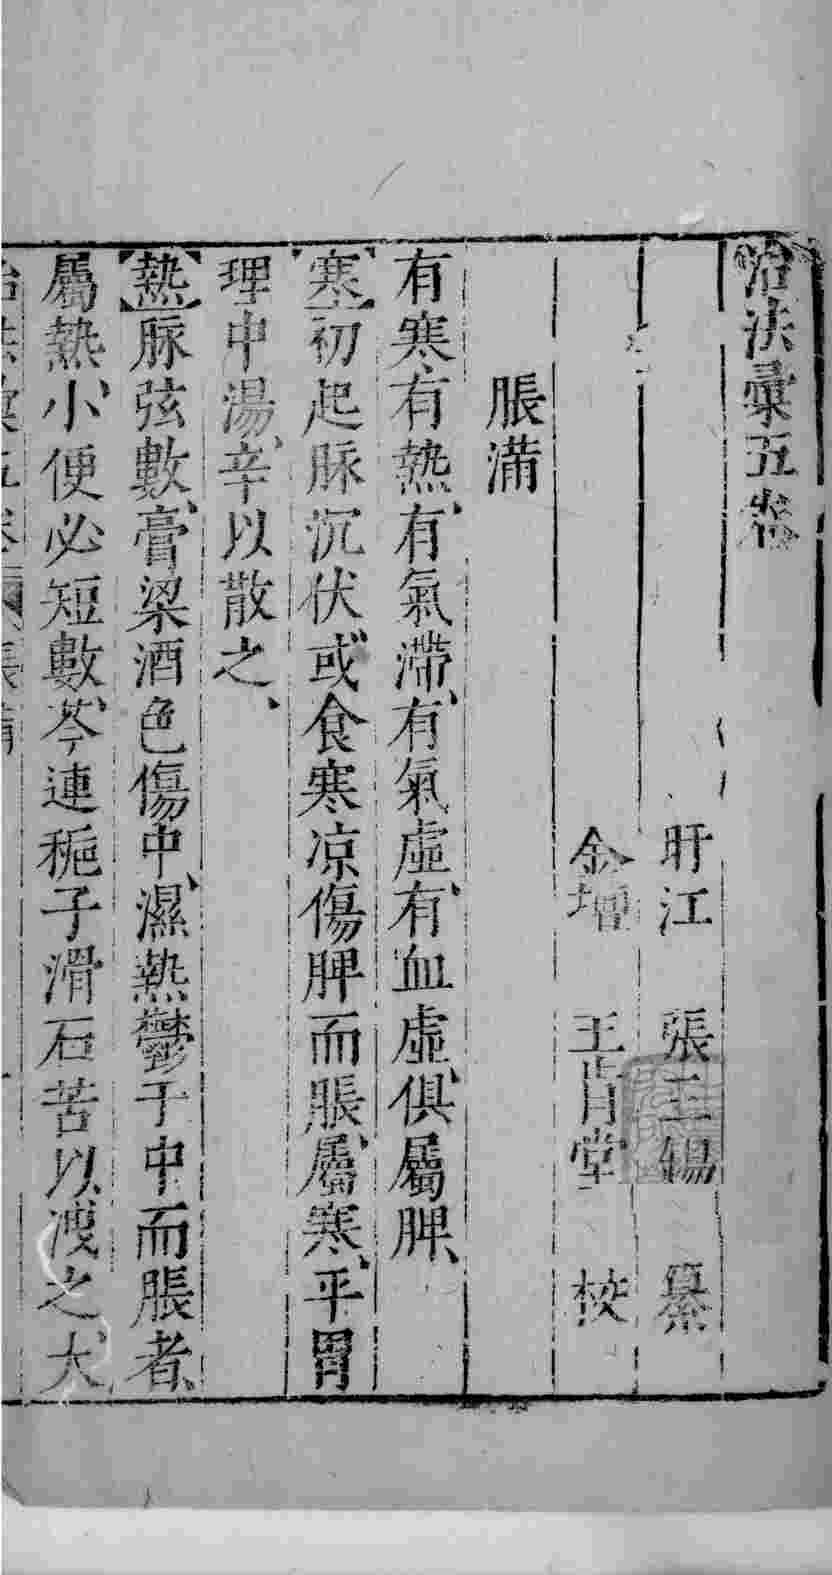 治法彙五卷
盱江 張三錫 纂
金壇 王肯堂 校
脹滿
有寒有熱、有氣滯、有氣虛、有血虛、俱屬脾、
【寒】初起脉沉伏或食寒凉傷脾而脹、屬寒、平胃
理中湯、辛以散之、
【熱】脉弦數、膏粱酒色傷中、濕熱鬱于中而脹者、
屬熱、小便必短數、芩連梔子滑石苦以洩之、大